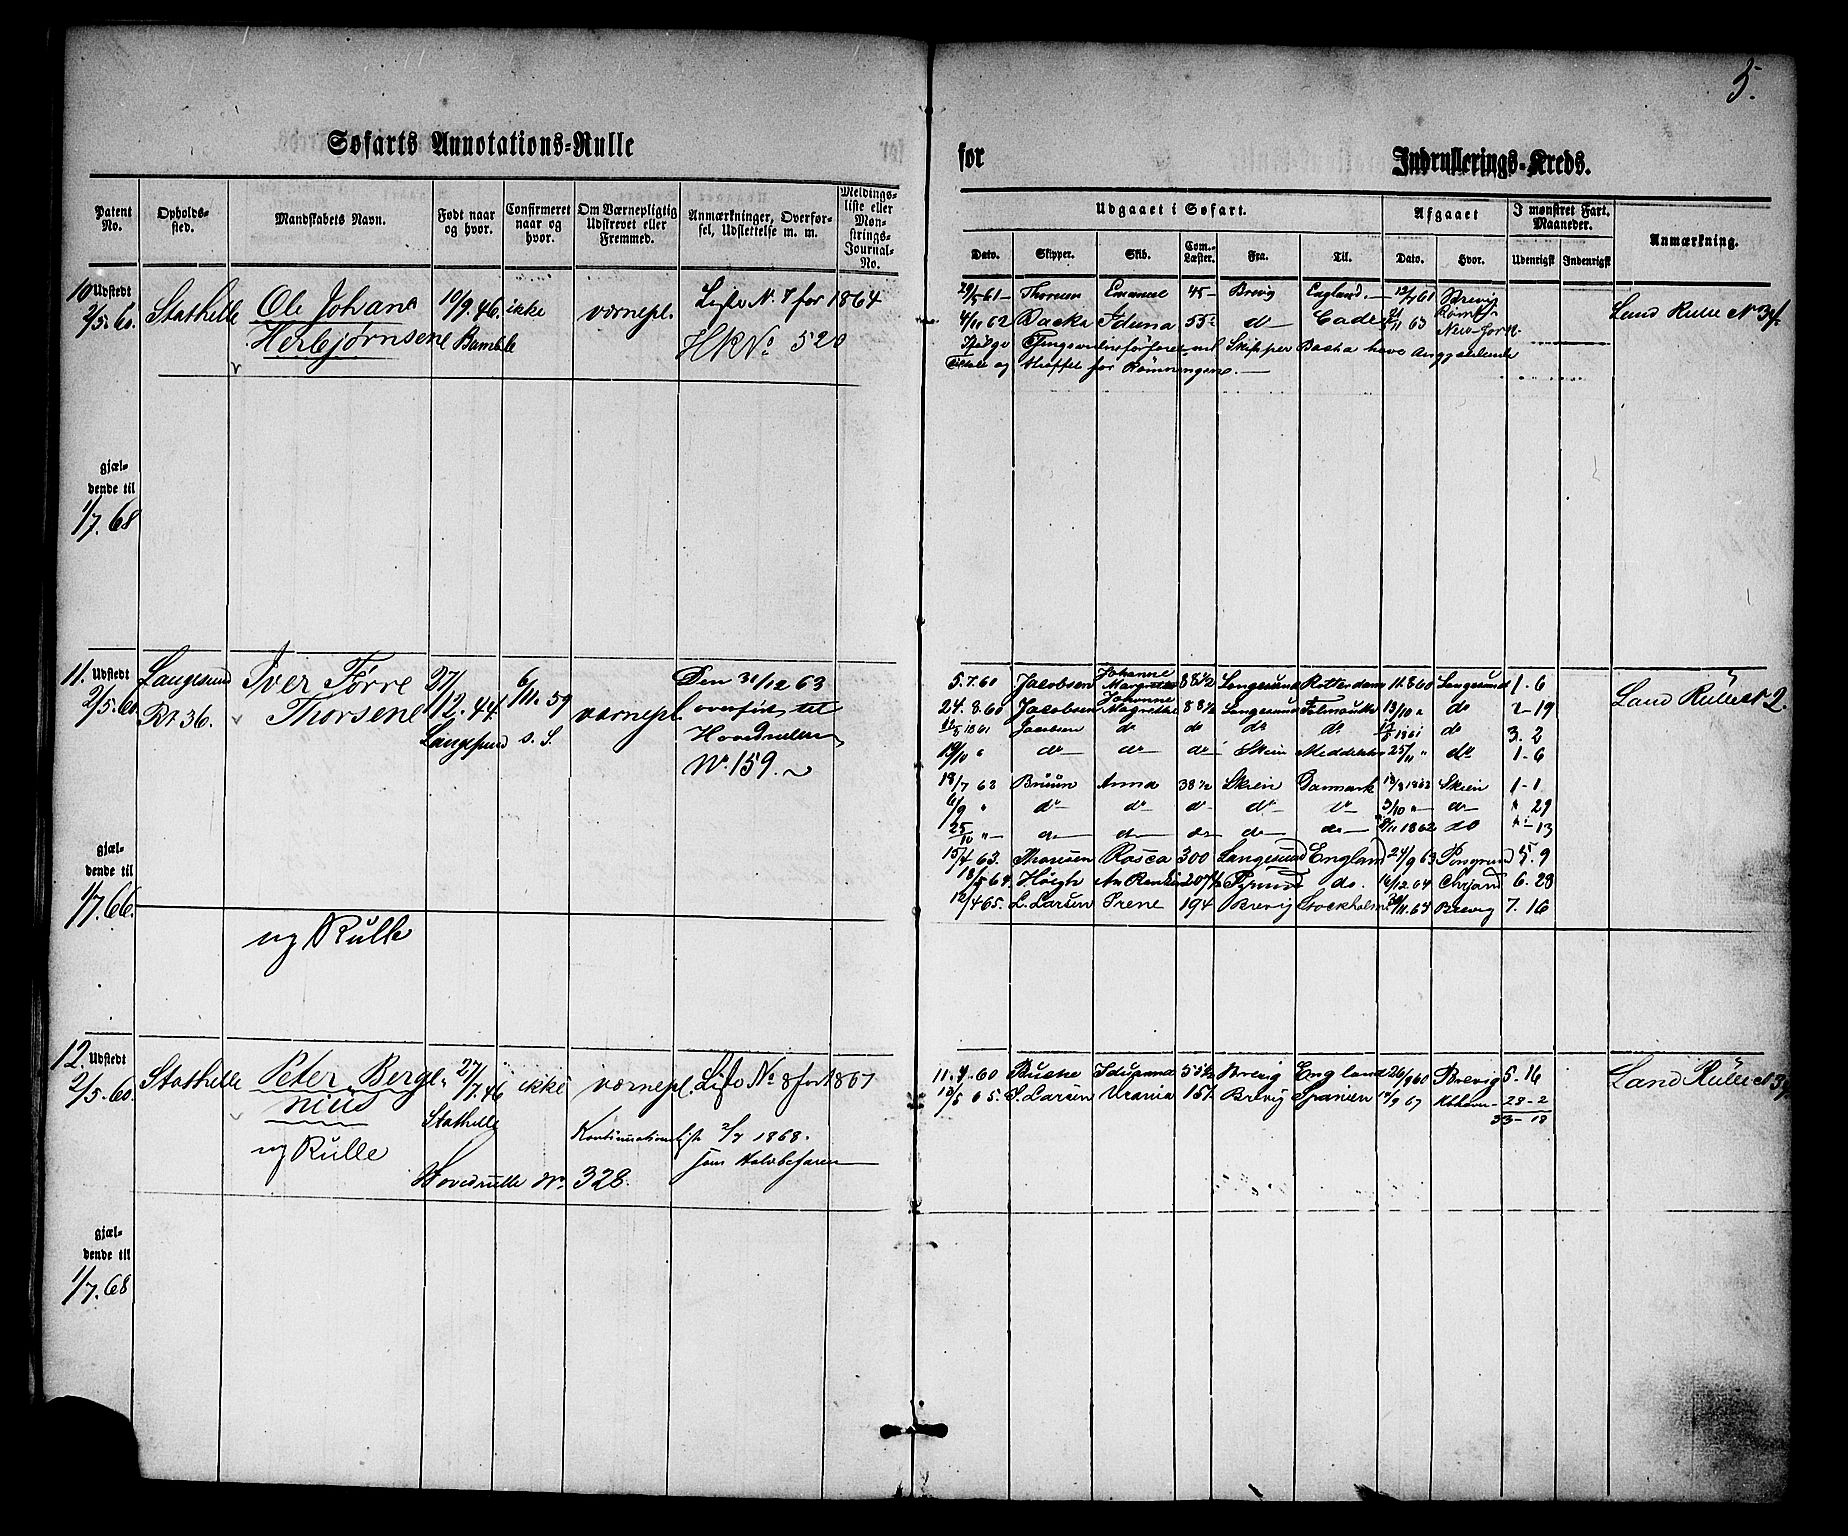 5.
Søfarts Annotations-Rulle for Indrullerings-Kreds.
Patent No. Opholds-sted. Mandskabets Navn. Født naar og hvor. Confirmeret naar og hvor. Om Værnepligtig Udskrevet eller Fremmed. Anmærkninger, Overførsel, Udslettelse m. m. Meldings-liste eller Mønstrings-Journal-No.
Udgaaet i Søfart. Afgaaet I mønstret Fart. Maaneder. Anmærkning.
Dato. Skipper. Skib. Com.-Læster. Fra. Til. Dato. Hvor. Udenrigsk Indenrigsk
10 Udstedt Stathelle Ole Johan 10/9.46. ikke værnepl. Liste No. 7 for 1864
2/5.60. Herbjørnsene Bamble HRNo. 520
29/5 61 Thorsen Emanuel 45 Brevig England. 12/7 61 Brevig Land Rulle No
4/11 62 Backa Iduna 55 do Cade 63 New-York
Ifølge Skipper Backa have
og straffet for Rømningene.
gjæl-
dende til
1/7.68
11. Udstedt Langesund Iver Tørre 27/12.44 6/11.59 værnepl. Den 31/12 63
2/5.60 Rt 36. Thorsene Langesund s. S. overført til
Hovedrullen
No. 159.
5.7.60 Jacobsen Johanne Margrethe 88 1/2 Langesund Rotterdam 11.8 60 Langesund 1-6 Land Rulle No 2.
24.8.60 Jacobsen Johanne Magrethe 88 1/2 Langesund 13/10 " do 2-19
1861 Jacobsen do do do do 1861 do 3.2
19/10 " do do do Skien 25/11 " do 1-6
18/7 62 Bruun Anna 38 1/2 Skien Danmark 1862 Skien 1-1
6/9 " do do do do do 3/10 " do " 29
25/10 " do do do do do 8/11 1862 do " 13
15/4 63. Thorsen Rosca 300 Langesund England 24/9 63 5.9
18/5 64. Høigh do. 16/12.64 6.28
12/4 65. L. Larsen Irene 194 Brevig Stockholm Brevig 7.16
gjæl-
dende til
1/7.66.
ug Rulle
12. Udstedt Stathelle Peter Berge- 27/7.46 ikke værnepl. Liste No 8 for 1867
2/5.60 nius Stathelle
ug Rulle Kontinuations Liste 2/7 1868.
som Halvbefaren
Hovedrulle No. 328.
11.4.60 Brevig England 26/9 60 Brevig 5.16 Land Rulle No
65. S. Larsen Urania 157. Brevig Spanien 67 28-2
33-18
gjæl-
dende til
1/7.68